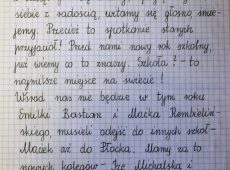 siebie z radością, witamy się głośno, śmie-
jemy. Przecież to spotkanie starych
przyjaciół! Przed nami nowy rok szkolny,
już wiemy co to znaczy. Szkoła? - to
najmilsze miejsce na świecie!
Wśród nas nie będzie w tym roku
Emilki Bastian i Maćka Rembieliń-
skiego, musieli odejść do innych szkół-
Maciek aż do Płocka. Mamy za to
nowych kolegów- Izę Michalską i